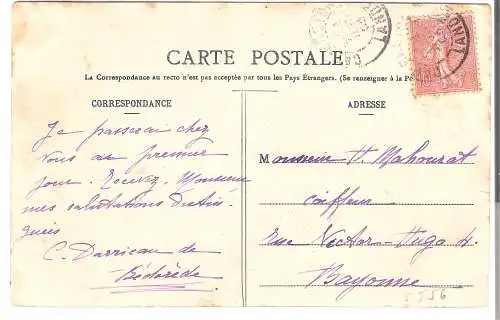 CARTE POSTALE
La Correspondance au recto n'est pas acceptée par tous les Pays Étrangers. (Se renseigner à la
CORRESPONDANCE
Je passerai chez
vous au premier
jour. Recevez, Monsieur
mes salutations distin
guées
C. Darricau de
Bédorède
ADRESSE
Monsieur V. Mahourat
coiffeur
rue Victor-Hugo 4.
Bayonne